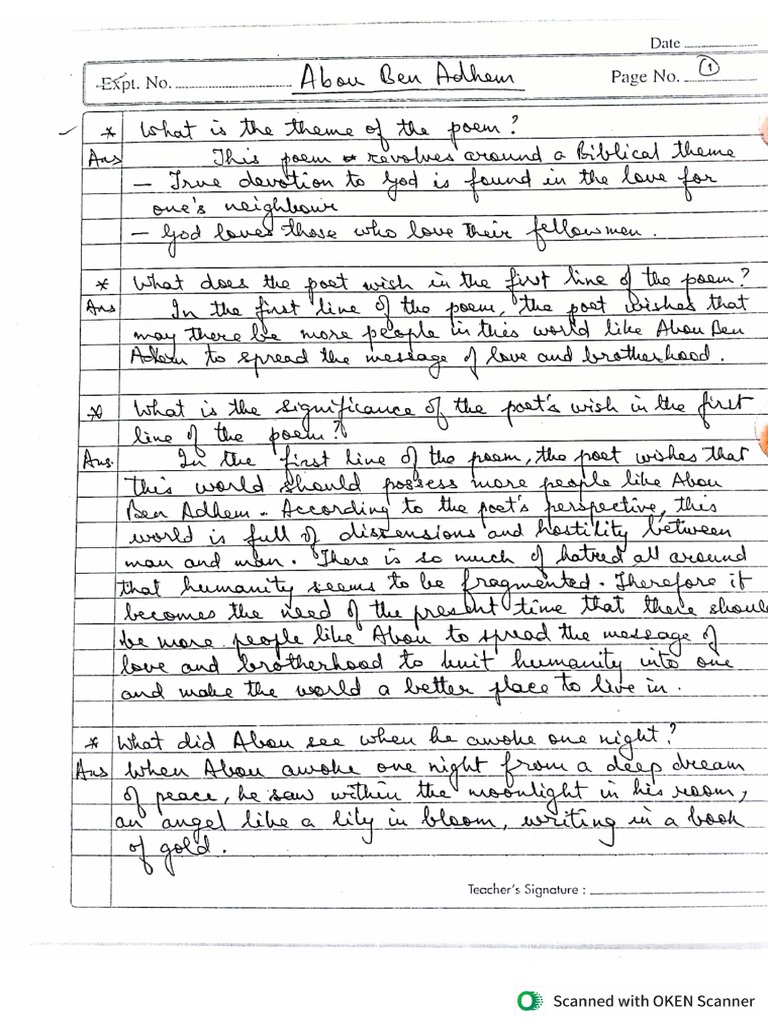 Date
Expt. No. Abou Ben Adhem Page No. 1
* What is the theme of the poem?
Ans This poem revolves around a Biblical theme
– True devotion to God is found in the love for
one's neighbour
– God loves those who love their fellowmen.
* What does the poet wish in the first line of the poem?
Ans In the first line of the poem, the poet wishes that
may there be more people in this world like Abou Ben
Adem to spread the message of love and brotherhood.
* What is the significance of the poet's wish in the first
line of the poem?
Ans. In the first line of the poem, the poet wishes that
this world should possess more people like Abou
Ben Adhem. According to the poet's perspective, this
world is full of dissensions and hostility between
man and man. There is so much of hatred all around
that humanity seems to be fragmented. Therefore it
becomes the need of the present time that there shoul
be more people like Abou to spread the message of
love and brotherhood to knit humanity into one
and make the world a better place to live in.
* What did Abou see when he awoke one night?
Ans When Abou awoke one night from a deep dream
of peace, he saw within the moonlight in his room,
an angel like a lily in bloom, writing in a book
of gold.
Teacher's Signature :
Scanned with OKEN Scanner